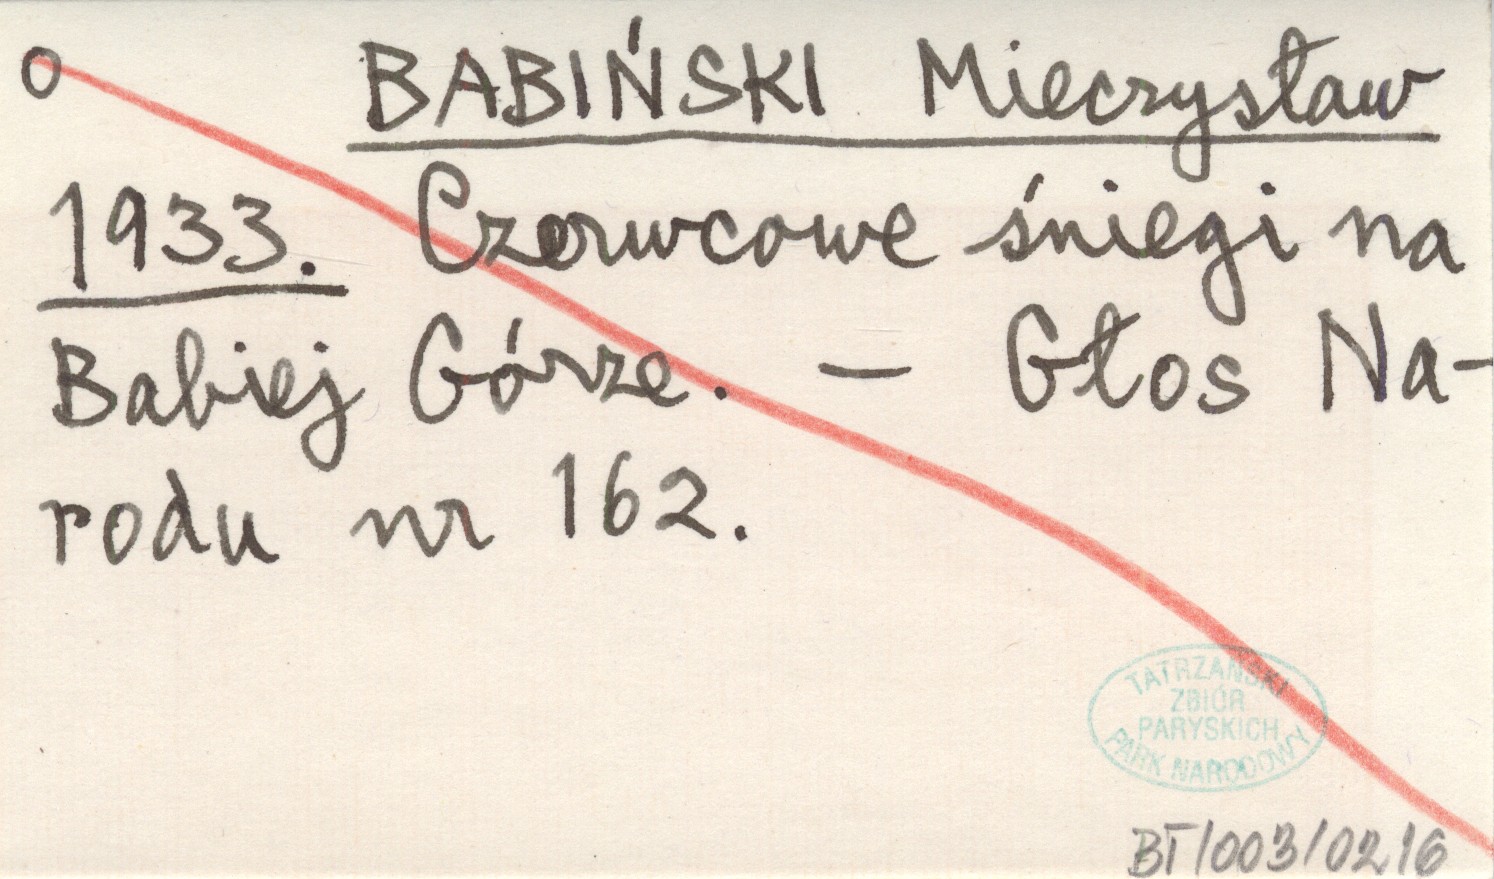 O BABIŃSKI Mieczysław
1933. Czerwcowe śniegi na
Babiej Górze. — Głos Na-
rodu nr 162.
TATRZAŃSKI
ZBIÓR
PARYSKICH
PARK NARODOWY
BT/003/0216